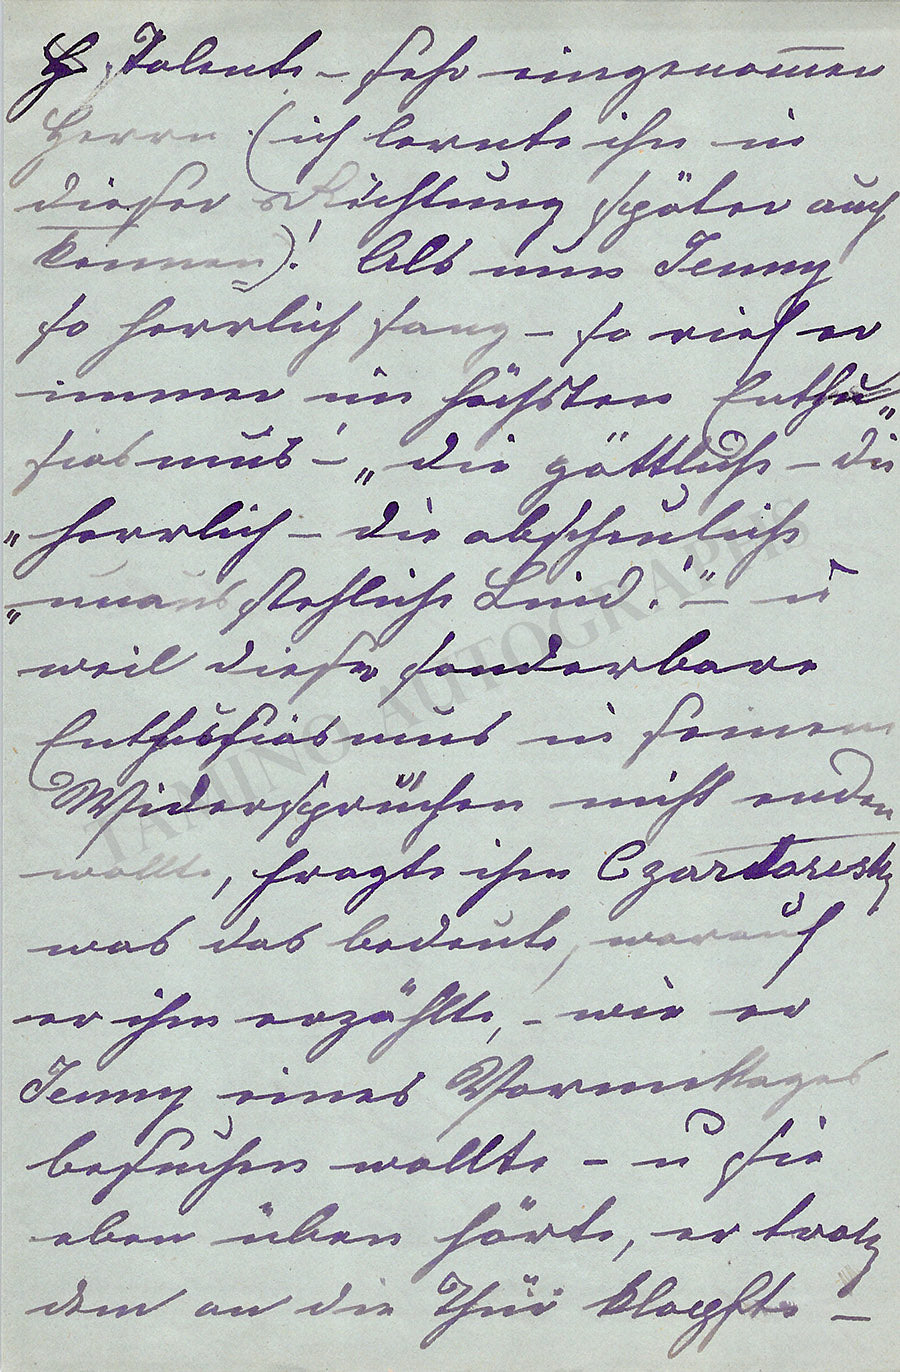 Talente – sehr eingenommen
Herrn. (ich lernte ihn in
dieser Richtung später auch
kennen)! Als nun Jenny
so herrlich sang – so rief er
immer im höchsten Enthu„
siasmus! – „die göttliche – die
„herrlich – die abscheuliche
„unausstehliche Lind!“ – u
weil dieser sonderbare
Enthusiasmus in seinem
Widersprüchen nicht enden
wollte, fragte ihn Czartoresky
was das bedeute, worauf
er ihm erzählte, – wie er
Jenny eines Vormittages
besuchen wollte – u sie
eben üben hörte, er trotz
dem an die Thür klopfte –
TAMINO AUTOGRAPHS